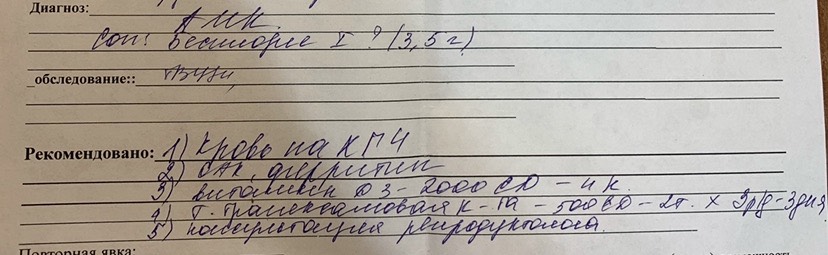 Диагноз:
АМК.
Соп: Бесплодие I ? (3,5 г)
обследование::
Рекомендовано: 1) Кровь на ХГЧ
2) ОАК, ферритин
3) витамин Д3 - 2000 ЕД -
4) Т. Транексамовая к-та - 500 - 2т. х 3р/д - 3 дня
5) консультация репродуктолога.
Повторная явка: